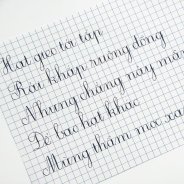 Hạt gieo tới tấp
Rải khắp ruộng đồng
Nhưng chẳng nảy mầm
Để bác hạt khác
Mừng thầm mọc xa